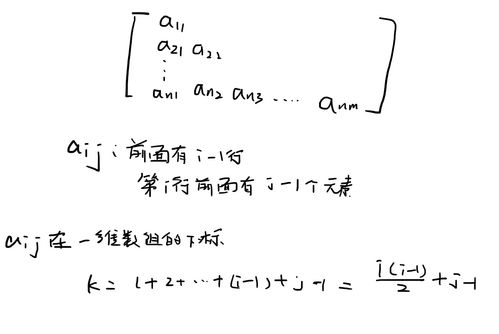 a11
a21 a22
⋮
an1 an2 an3 .... anm
aij：前面有 i-1行
第i行前面有 j-1个元素
aij在一维数组的下标
k = 1+2+…+(i-1)+j-1 = i(i-1)/2 + j-1